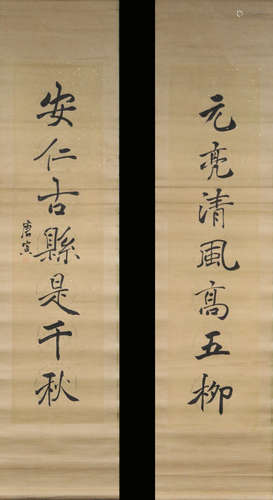 元亮清風高五柳
安仁古縣是千秋
唐寅